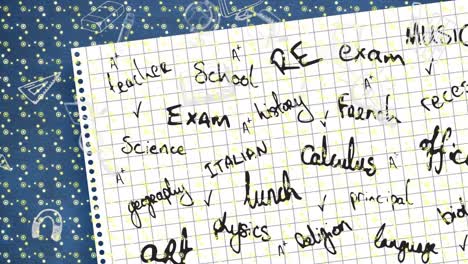 A+ A+ RE exam MUSIC
teacher School
A+ French rece
Exam history
Science ITALIAN calculus A+ offic
A+
geography lunch principal
physics A+ religion language
art